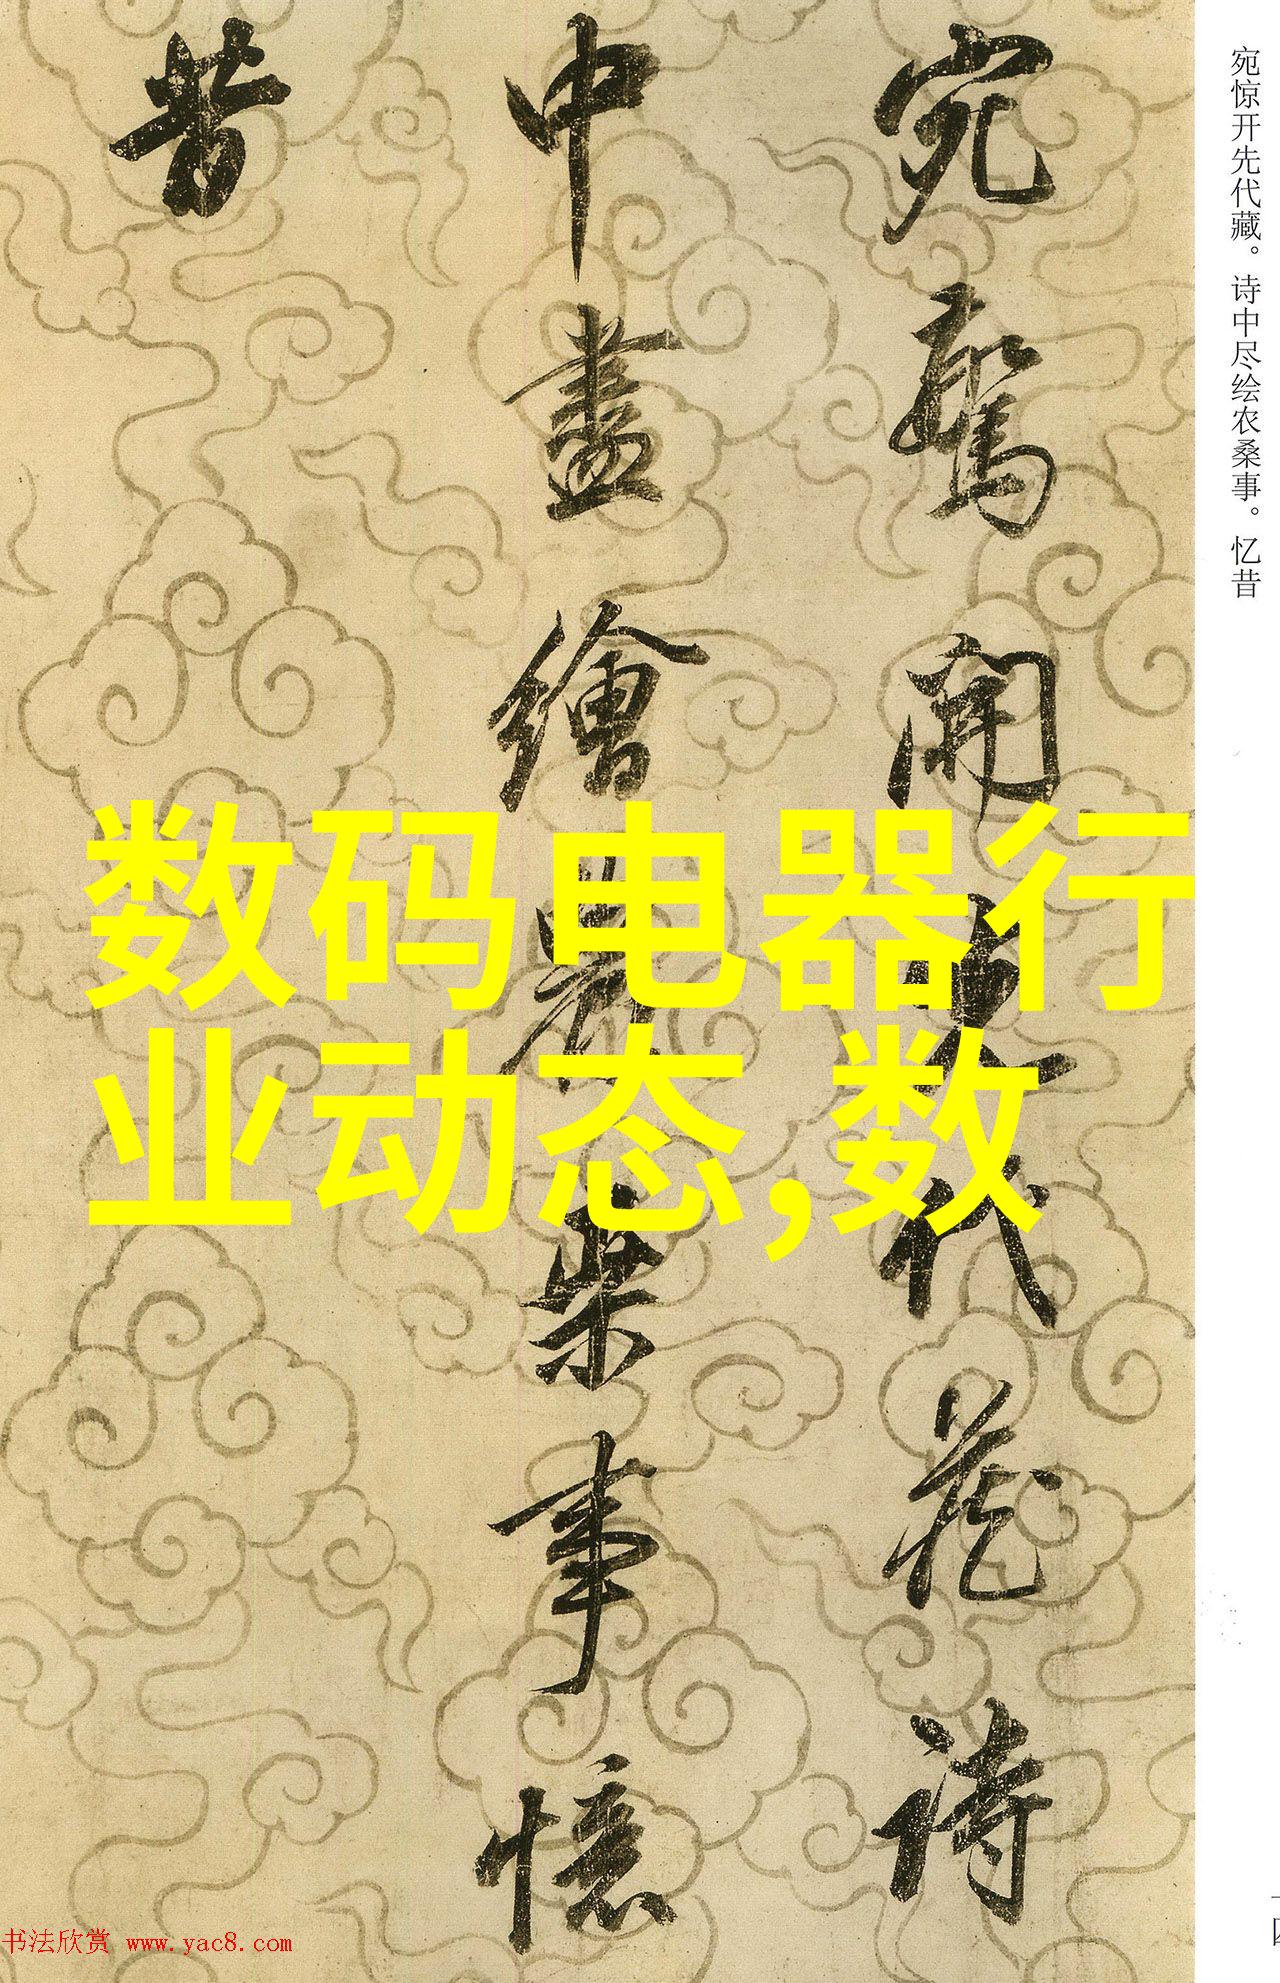 宛驚開先代藏詩
中盡繪農桒事憶
昔
宛惊开先代藏。诗中尽绘农桑事。忆昔
数码电器行
业动态,数
书法欣赏 www.yac8.com